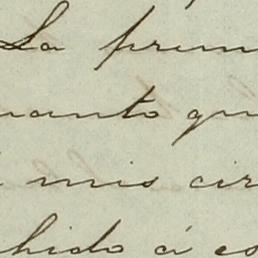 La prim
uanto qu
mis cir
hido á es